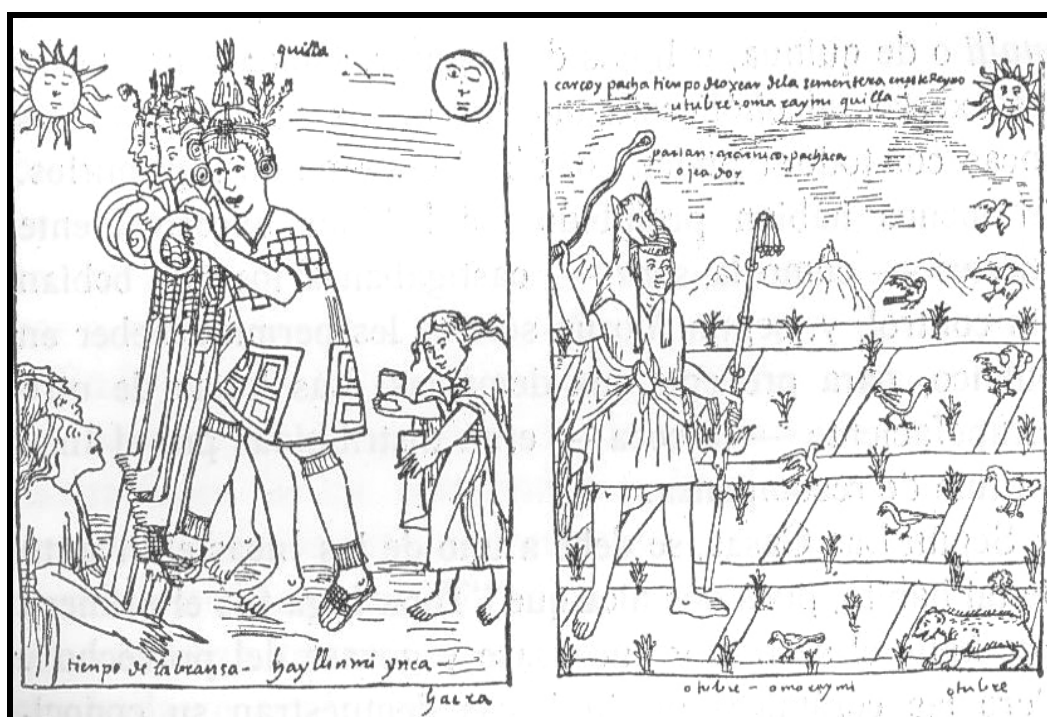 quilla
tiempo de labransa - hayllinmi ynca
hacra
carcoy pacha tiempo de oxear dela sementera eneste Reyno
utubre - oma raymi quilla -
parian · arcarico · pachaca
ojeador
otubre - omo raymi
otubre